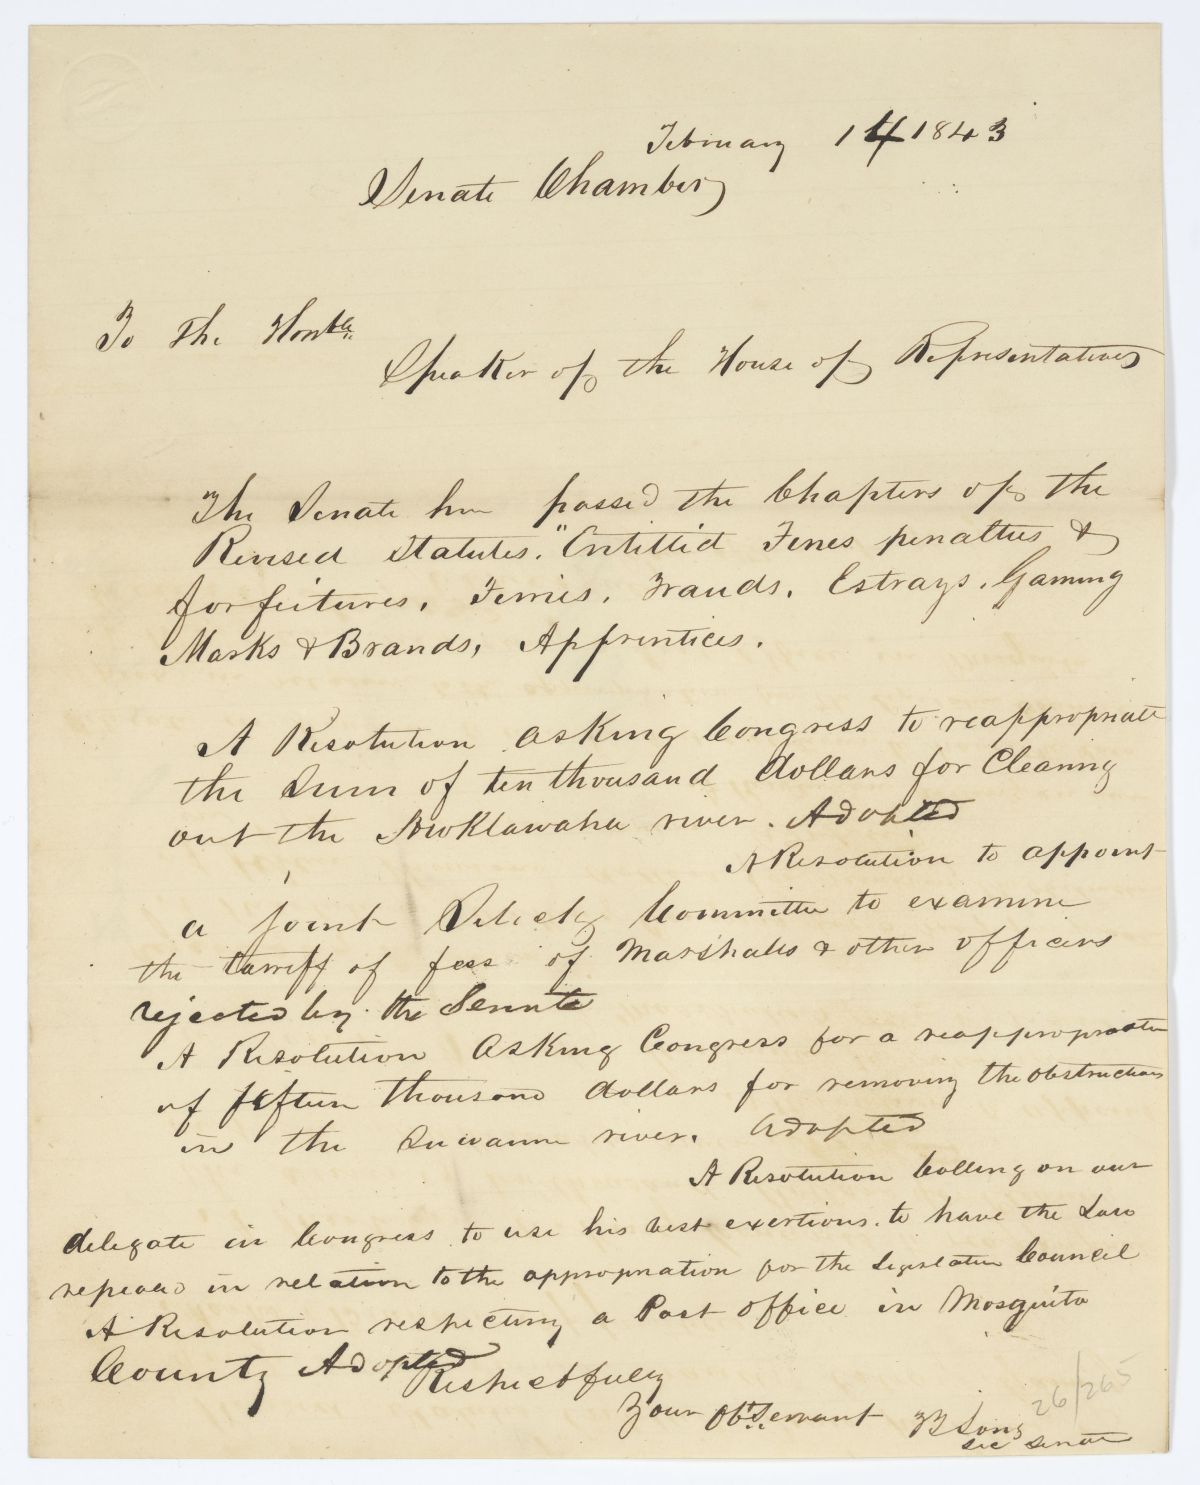 February 14 1843
Senate Chamber
To The Honble
Speaker of the House of Representatives
The Senate has passed the Chapters of the
Revised Statutes. "Entittled Fines penalties &
forfeitures. Ferries. Frauds. Estrays. Gaming
Marks & Brands, Apprentices.
A Resolution asking Congress to reappropriate
the Sum of ten thousand dollars for Cleaning
out the river. Adopted
A Resolution to appoint
a joint Select Committee to examine
the tarriff of fees of Marshalls & other officers
rejected by the Senate
A Resolution Asking Congress for a reappropriation
of fifteen thousand dollars for removing the obstructions
in the Suwannee river. Adopted
A Resolution Calling on our
delegate in Congress to use his best exertions to have the Law
repealed in relation to the appropriation for the Legislative Council
A Resolution respecting a Post office in Mosquito
County Adopted
Respectfully
Your obt Servant Long
Sec Senate
26/265